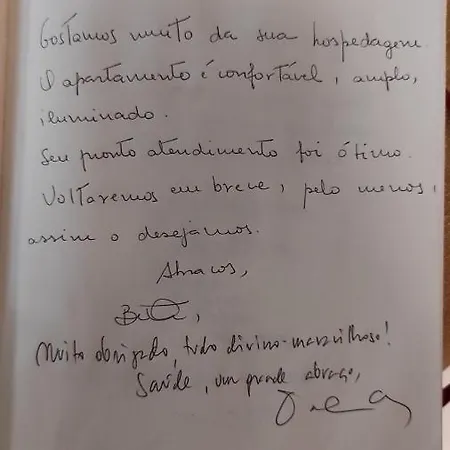 Gostamos muito da sua hospedagem.
O apartamento é confortável, amplo,
iluminado.
Seu pronto atendimento foi ótimo.
Voltaremos em breve, pelo menos,
assim o desejamos.
Abraços,
Muito obrigado, tudo divino-maravilhoso!
Saúde, um grande abraço,